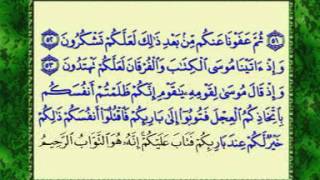 ﴿٥١﴾ ثُمَّ عَفَوْنَا عَنكُم مِّنۢ بَعْدِ ذَٰلِكَ لَعَلَّكُمْ تَشْكُرُونَ ﴿٥٢﴾
وَإِذْ ءَاتَيْنَا مُوسَى ٱلْكِتَٰبَ وَٱلْفُرْقَانَ لَعَلَّكُمْ تَهْتَدُونَ ﴿٥٣﴾
وَإِذْ قَالَ مُوسَىٰ لِقَوْمِهِۦ يَٰقَوْمِ إِنَّكُمْ ظَلَمْتُمْ أَنفُسَكُم
بِٱتِّخَاذِكُمُ ٱلْعِجْلَ فَتُوبُوٓا۟ إِلَىٰ بَارِئِكُمْ فَٱقْتُلُوٓا۟ أَنفُسَكُمْ ذَٰلِكُمْ
خَيْرٌ لَّكُمْ عِندَ بَارِئِكُمْ فَتَابَ عَلَيْكُمْ إِنَّهُۥ هُوَ ٱلتَّوَّابُ ٱلرَّحِيمُ